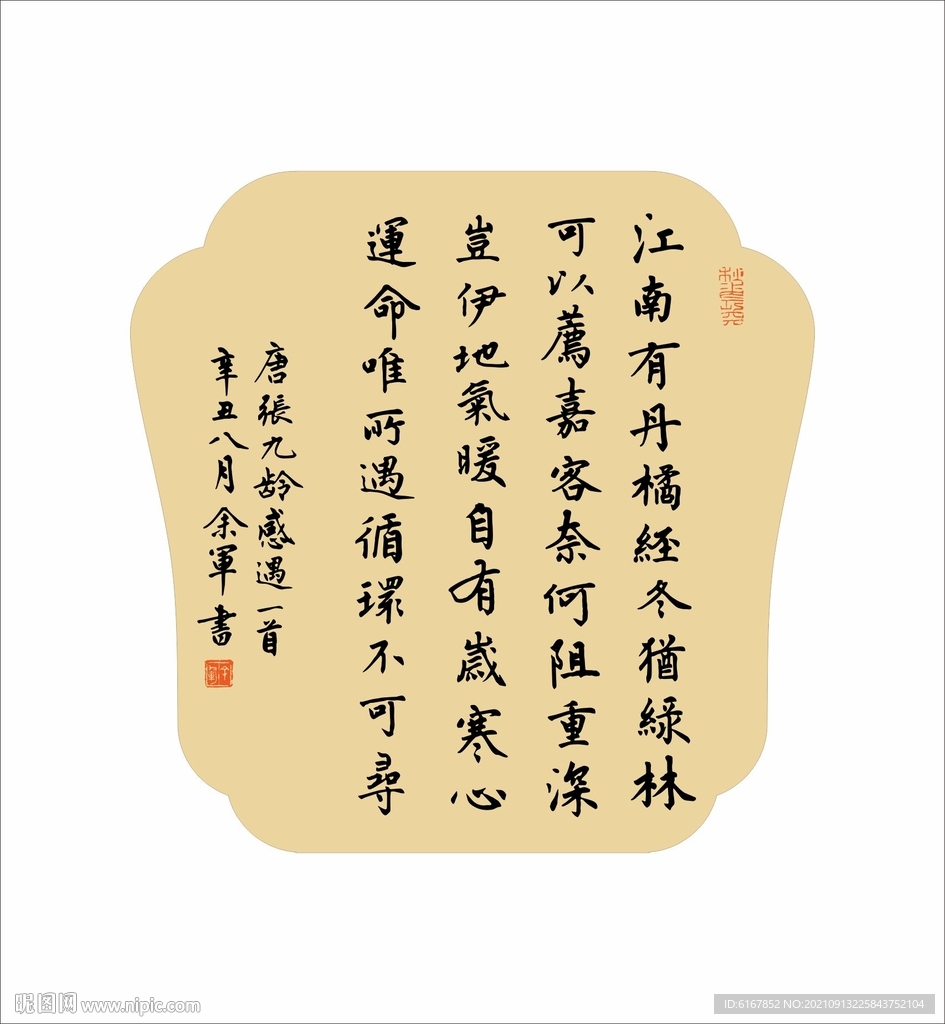 江南有丹橘經冬猶綠林
可以薦嘉客奈何阻重深
豈伊地氣暖自有歲寒心
運命唯所遇循環不可尋
唐張九龄感遇一首
辛丑八月余軍書
昵图网 www.nipic.com
ID:6167852 NO:20210913225843752104